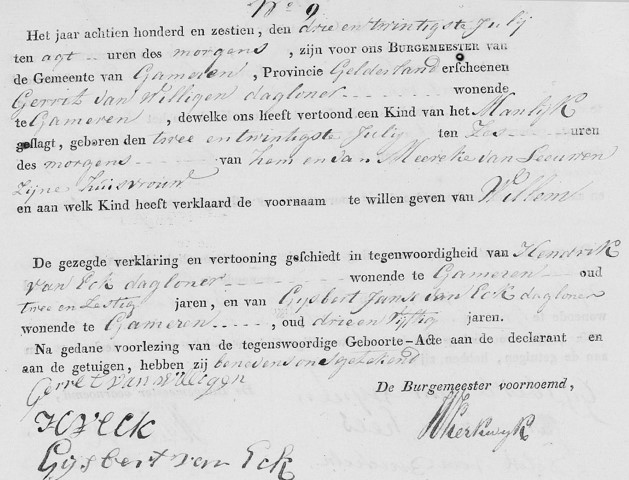 No 9
Het jaar achtien honderd en zestien, den drie en twintigste Julij
ten agt uren des morgens, zijn voor ons BURGEMEESTER van
de Gemeente van Gameren, Provincie Gelderland erscheenen
Gerrit van Willigen dagloner wonende
te Gameren, dewelke ons heeft vertoond een Kind van het Manlijk
geslagt, geboren den twee en twintigste Julij ten Zes uren
des morgens van hem en van Meereke van Leeuwen
Zijne huisvrouw
en aan welk Kind heeft verklaard de voornaam te willen geven van Willem
De gezegde verklaring en vertooning geschiedt in tegenwoordigheid van Hendrik
van Eck dagloner wonende te Gameren oud
twee en Zestig jaren, en van Gijsbert Janse van Eck dagloner
wonende te Gameren, oud drie en vijftig jaren.
Na gedane voorlezing van de tegenswoordige Geboorte-Acte aan de declarant en
aan de getuigen, hebben zij benevens ons getekend
Gerret van willegen
De Burgemeester voornoemd,
HVECK
Gijsbert van Eck